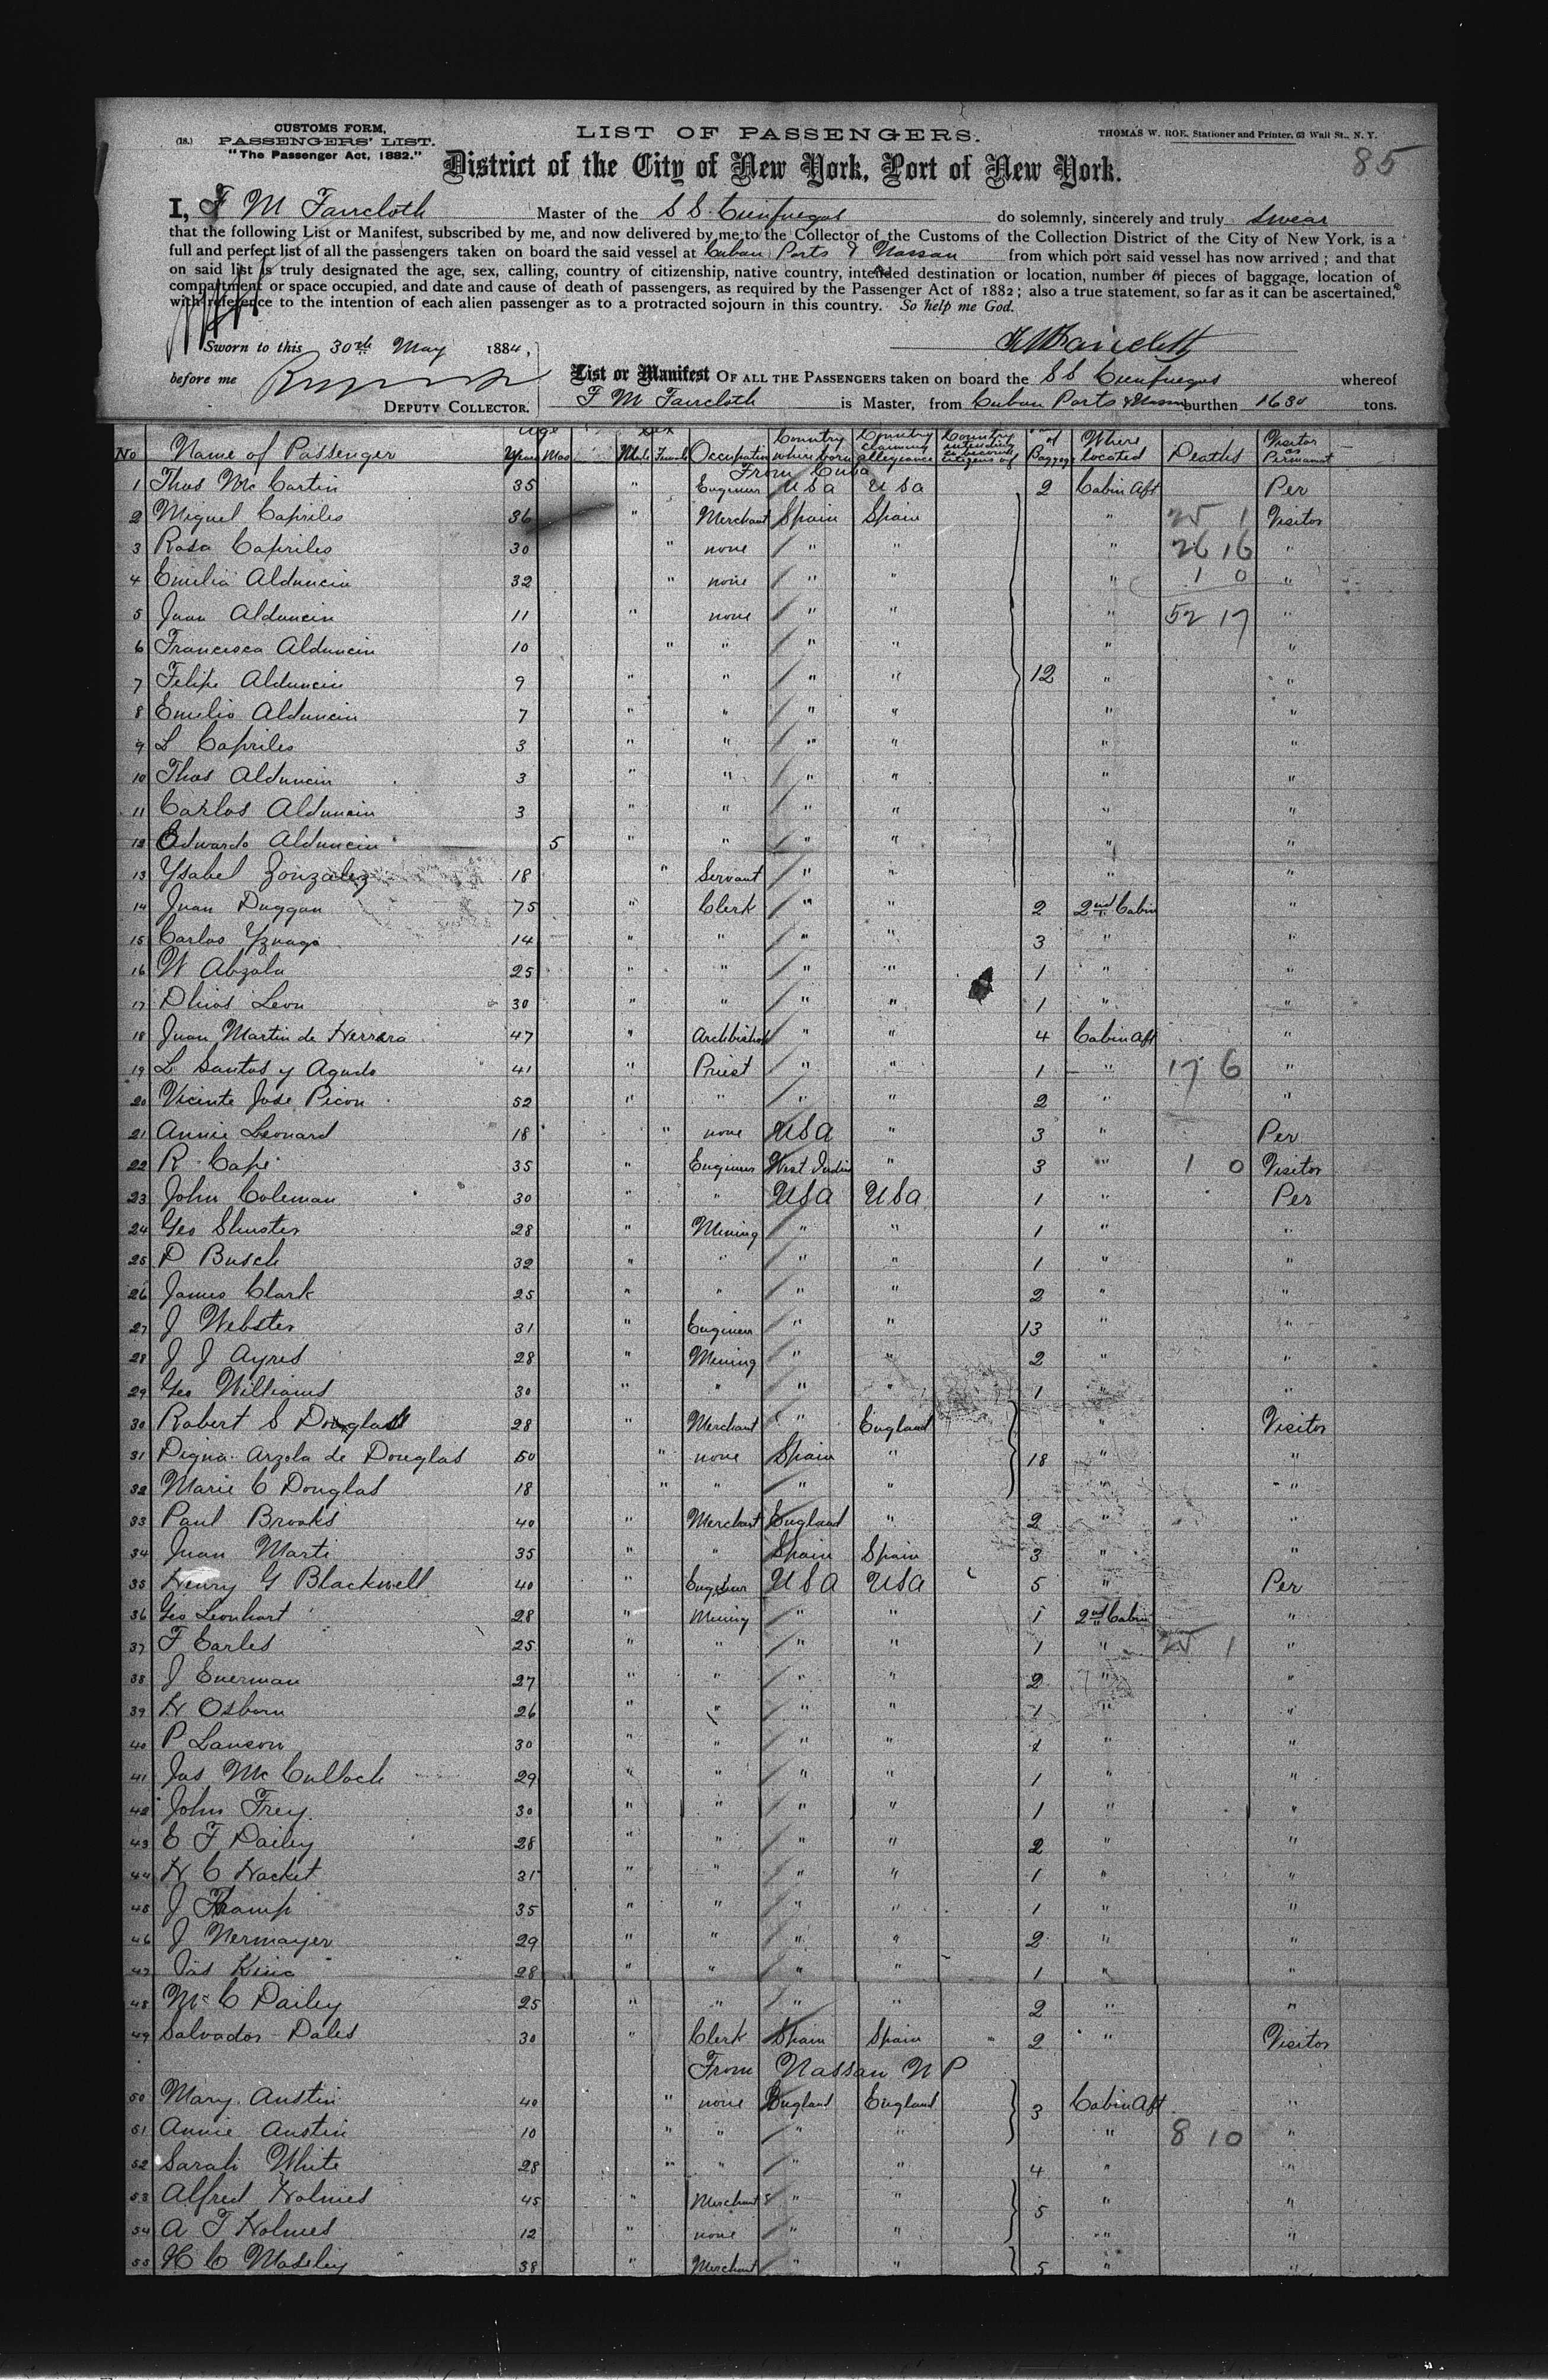 (18.) CUSTOMS FORM, PASSENGERS' LIST. "The Passenger Act, 1882."
LIST OF PASSENGERS.
THOMAS W. ROE, Stationer and Printer, 63 Wall St., N. Y.
85
District of the City of New York, Port of New York.
I, F M Faircloth Master of the S S Cienfuegos do solemnly, sincerely and truly swear
that the following List or Manifest, subscribed by me, and now delivered by me to the Collector of the Customs of the Collection District of the City of New York, is a
full and perfect list of all the passengers taken on board the said vessel at Cuban Ports & Nassau from which port said vessel has now arrived; and that
on said list is truly designated the age, sex, calling, country of citizenship, native country, intended destination or location, number of pieces of baggage, location of
compartment or space occupied, and date and cause of death of passengers, as required by the Passenger Act of 1882; also a true statement, so far as it can be ascertained,
with reference to the intention of each alien passenger as to a protracted sojourn in this country. So help me God.
F M Faircloth
Sworn to this 30th May 1884,
before me
DEPUTY COLLECTOR.
List or Manifest OF ALL THE PASSENGERS taken on board the S S Cienfuegos whereof
F M Faircloth is Master, from Cuban Ports & Nassau burthen 1630 tons.
No Name of Passenger Age Years Mos Sex Male Female Occupation Country where born Country claiming allegiance Country intending to become citizens of of Baggage Where located Deaths Visitor or Permanent
From Cuba
1 Thos Mc Cartin 35 " Engineer USa USa 2 Cabin Aft Per
2 Miguel Capriles 36 " Merchant Spain Spain " 25 1 Visitor
3 Rosa Capriles 30 " none " " " 26 16 "
4 Emilia Alduncin 32 " none " " " 1 0 "
5 Juan Alduncin 11 " none " " " 52 17 "
6 Francisca Alduncin 10 " " " " " "
7 Felipe Alduncin 9 " " " " 12 " "
8 Emilio Alduncin 7 " " " " " "
9 L Capriles 3 " " " " " "
10 Thos Alduncin 3 " " " " " "
11 Carlos Alduncin 3 " " " " " "
12 Edwardo Alduncin 5 " " " " " "
13 Ysabel Gonzalez 18 " Servant " " " "
14 Juan Duggan 75 " Clerk " " 2 2nd Cabin "
15 Carlos Yznaga 14 " " " " 3 " "
16 W Abzola 25 " " " " 1 " "
17 Leon 30 " " " " 1 " "
18 Juan Martin de Herrera 47 " Archbishop " " 4 Cabin Aft "
19 L Santos y Agudo 41 " Priest " " 1 " 17 6 "
20 Vicente Jose Picon 52 " " " " 2 " "
21 Annie Leonard 18 " none USA " 3 " Per
22 R Cape 35 " Engineer West Indies " 3 " 1 0 Visitor
23 John Coleman 30 " " USA USA 1 " Per
24 Geo Shuster 28 " Mining " " 1 " "
25 P Busch 32 " " " " 1 " "
26 James Clark 25 " " " " 2 " "
27 J Webster 31 " Engineer " " 13 " "
28 J J Ayres 28 " Mining " " 2 " "
29 Geo Williams 30 " " " " 1 " "
30 Robert S Douglas 28 " Merchant " England " Visitor
31 Digna Arzola de Douglas 50 " none Spain " 18 " "
32 Marie C Douglas 18 " " " " " "
33 Paul Brooks 40 " Merchant England " 2 " "
34 Juan Marti 35 " " Spain Spain 3 " "
35 Henry G Blackwell 40 " Engineer USA USA 5 " Per
36 Geo Leonhart 28 " Mining " " 1 2nd Cabin "
37 F Earles 25 " " " " 1 " 25 1 "
38 J Enerman 27 " " " " 2 " "
39 H Osborn 26 " " " " 1 " "
40 P Lanson 30 " " " " 1 " "
41 Jas Mc Cullock 29 " " " " 1 " "
42 John Frey 30 " " " " 1 " "
43 E F Dailey 28 " " " " 2 " "
44 H C Hacket 31 " " " " 1 " "
45 J 35 " " " " 1 " "
46 J Nermayer 29 " " " " 2 " "
47 Jas King 28 " " " " 1 " "
48 Mc C Dailey 25 " " " " 2 " "
49 Salvador Dales 30 " Clerk Spain Spain 2 " Visitor
From Nassau N P
50 Mary Austin 40 " none England England Cabin Aft "
51 Annie Austin 10 " " " " 3 " 8 10 "
52 Sarah White 28 " " " " 4 " "
53 Alfred Holmes 45 " Merchant " " 5 " "
54 A T Holmes 12 " none " " " "
55 H C Moseley 38 " Merchant " " 5 " "